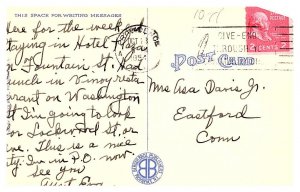 THIS SPACE FOR WRITING MESSAGES
Here for the week end
Staying in Hotel
on Fountain St. Had
lunch in Vinoy rest-
aurant on Washington
St I'm going to look
for Lockwood St. or
ave. This is a nice
city. I'm in P.O. now
See you
Aunt
GIVE-EN
THROUGH
2 CENTS 2
POST CARD
Miss Asa Davis Jr.
Eastford
Conn